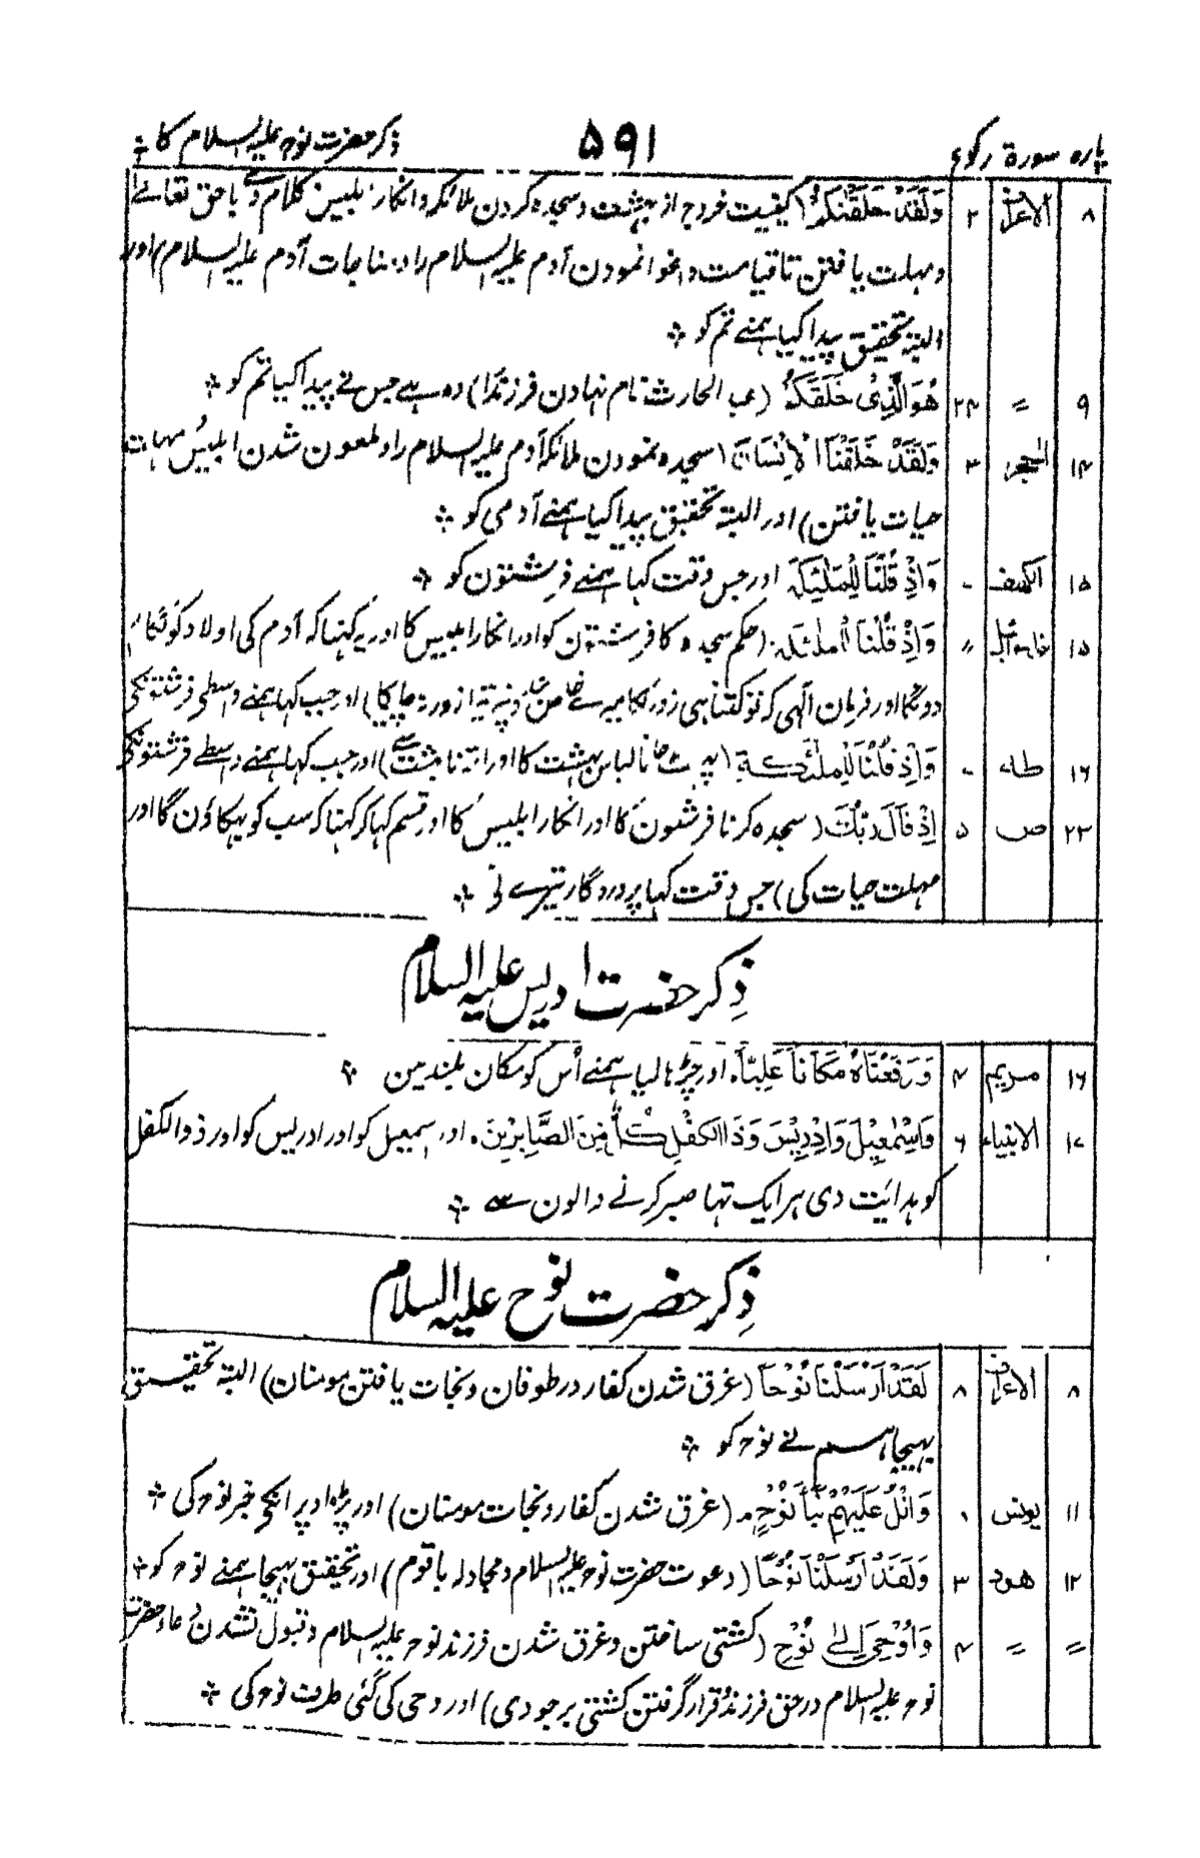 پارہ سورۃ رکوع ۵۹۱ ذکر حضرت نوح علیہ السلام کا
۸ الاعراف ۲ وَلَقَدْ خَلَقْنٰكُمْ (کیفیت خروج از بہشت و سجدہ کردن ملائکہ و انکار ابلیس کلام وے باحق تعالےٰ
و مہلت یافتن تا قیامت و اغوا نمودن آدم علیہ السلام را و مناجات آدم علیہ السلام) اور
البتہ تحقیق پیدا کیا ہمنے تم کو
۹ = ۲۴ هُوَالَّذِیْ خَلَقَكُمْ (عبد الحارث نام نہادن فرزند را) وہ ہے جس نے پیدا کیا تم کو
۱۴ الحجر ۳ وَلَقَدْ خَلَقْنَا الْاِنْسَانَ (سجدہ نمودن ملائکہ آدم علیہ السلام را و ملعون شدن ابلیس مہلت
حیات یافتن) اور البتہ تحقیق پیدا کیا ہمنے آدمی کو
۱۵ الکہف ۔ وَاِذْ قُلْنَا لِلْمَلٰئِكَةِ اور جس وقت کہا ہمنے فرشتون کو
۱۵ ۔ وَاِذْ قُلْنَا (حکم سجدہ کا فرشتون کو اور انکار ابلیس کا اور یہ کہنا کہ آدم کی اولاد کو
دونگا اور فرمان الٰہی کہ تو کتنا ہی زور لگا میرے خاص) اور جب کہا ہمنے واسطے فرشتونکے
۱۶ طہٰ ۔ وَاِذْ قُلْنَا لِلْمَلٰئِكَةِ ( لباس بہشت کا اور) اور جب کہا ہمنے واسطے فرشتونکے
۲۳ ص ۵ اِذْ قَالَ رَبُّكَ (سجدہ کرنا فرشتون کا اور انکار ابلیس کا اور قسم کہا کر کہنا کہ سب کو بہکاؤن گا اور
مہلت حیات کی) جس وقت کہا پروردگار تیرے نے
ذِکر حضرت ادریس علیہ السلام
۱۶ مریم ۴ وَرَفَعْنَاهُ مَكَانًا عَلِیًّا۔ اور چڑہا لیا ہمنے اُس کو مکان بلند مین
۱۷ الانبیاء ۶ وَاِسْمٰعِیْلَ وَاِدْرِیْسَ وَذَا الْكِفْلِ كُلٌّ مِّنَ الصَّابِرِیْنَ۔ اور سمعیل کو اور ادریس کو اور ذو الکفل
کو ہدایت دی ہر ایک تہا صبر کرنے والون سے
ذِکر حضرت نوح علیہ السلام
۸ الاعراف ۸ لَقَدْ اَرْسَلْنَا نُوْحًا (غرق شدن کفار در طوفان و نجات یافتن مومنان) البتہ تحقیق
بہیجا ہم نے نوح کو
۱۱ یونس ۱ وَاتْلُ عَلَیْهِمْ نَبَاَ نُوْحٍ۔ (غرق شدن کفار و نجات مومنان) اور پڑہ اوپر انکے خبر نوح کی
۱۲ ھود ۳ وَلَقَدْ اَرْسَلْنَا نُوْحًا (دعوت حضرت نوح علیہ السلام و مجادلہ باقوم) اور تحقیق بہیجا ہمنے نوح کو
= = ۴ وَاُوْحِیَ اِلٰی نُوْحٍ (کشتی ساختن و غرق شدن فرزند نوح علیہ السلام و قبول نشدن دعاء حضرت
نوح علیہ السلام در حق فرزند و قرار گرفتن کشتی بر جودی) اور وحی کی گئی طرف نوح کی